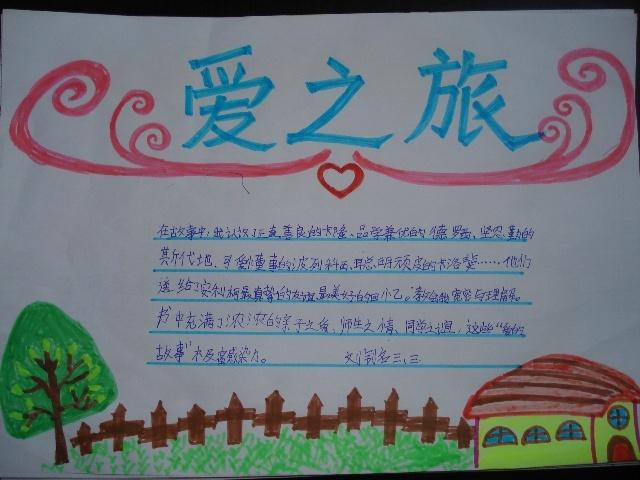 爱之旅
在故事中,我认识了正直善良的卡隆、品学兼优的德罗西、坚忍勤的
斯代地、可爱懂事的波列科西、聪明顽皮的卡洛斐……他们
送给了安利柯最真挚的友谊,最美好的回忆。教会我宽容与理解。
书中充满了浓浓的亲子之爱、师生之情、同学之谊,这些"爱的
故事"极富感染力。 三.三